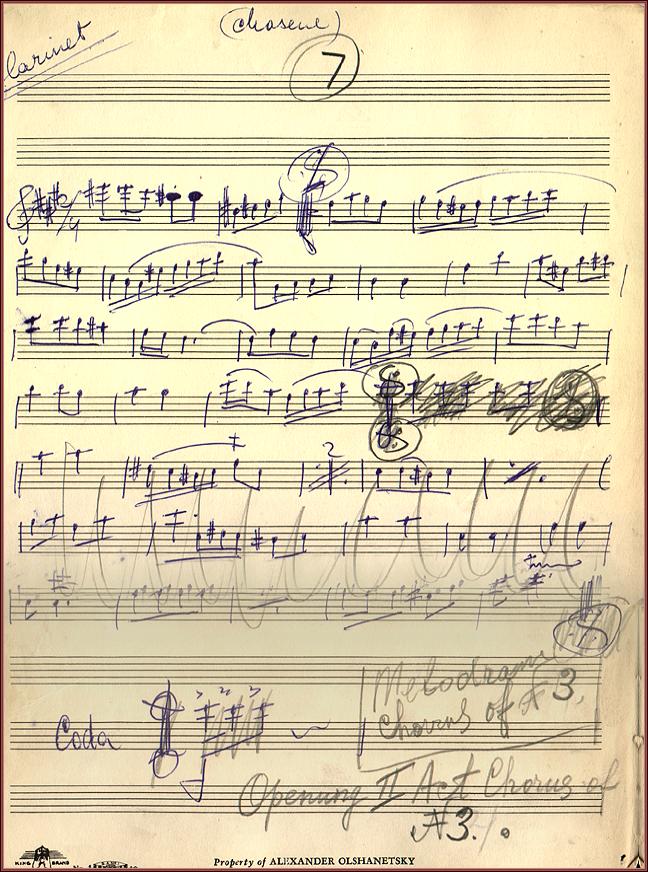 (chasene)
Clarinet
7
2/4
2
> 2 >
Coda
Melodrama
Chorus of # 3.
Opening II Act Chorus of
# 3.
KING BRAND
Property of ALEXANDER OLSHANETSKY